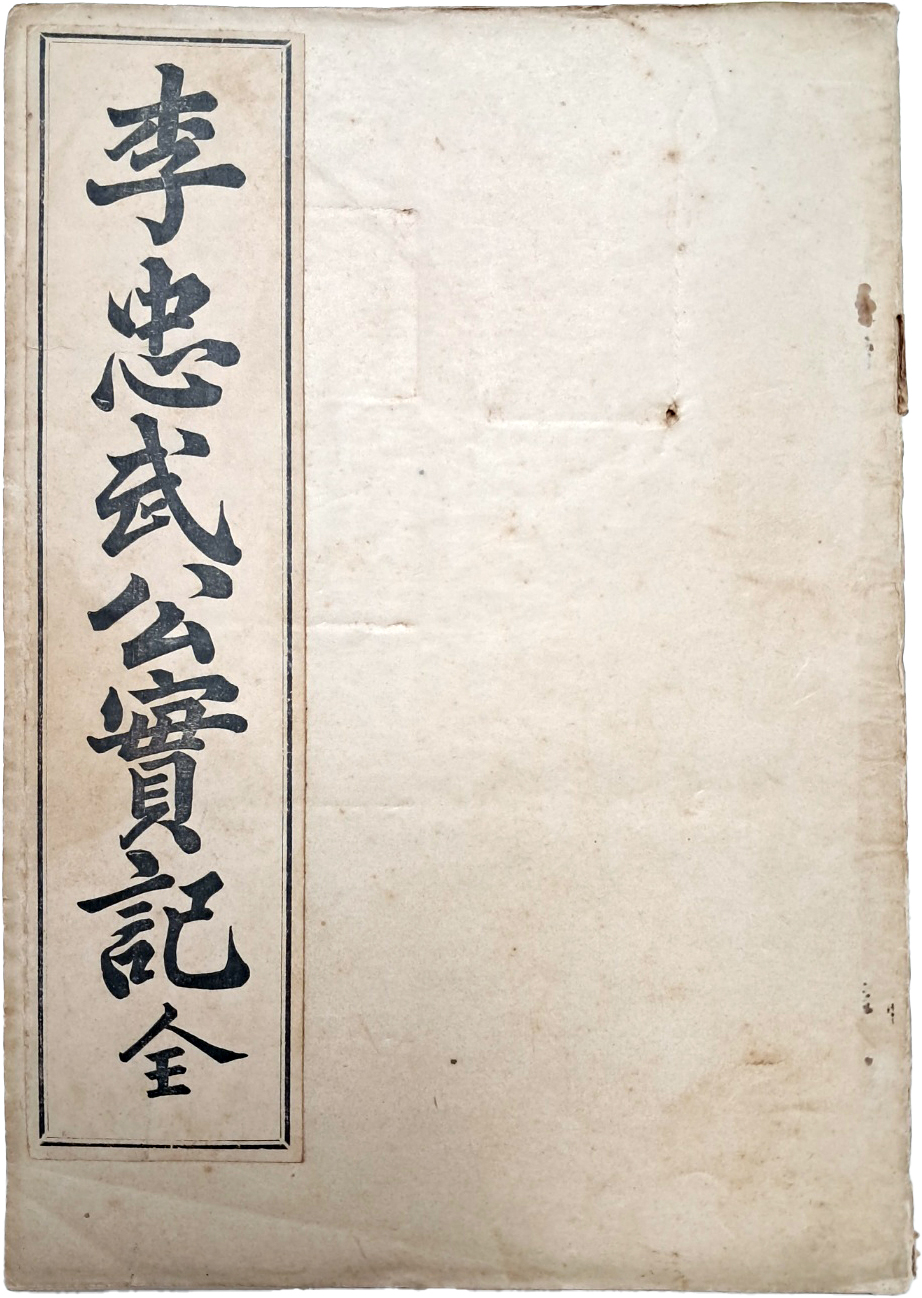 李忠武公實記全